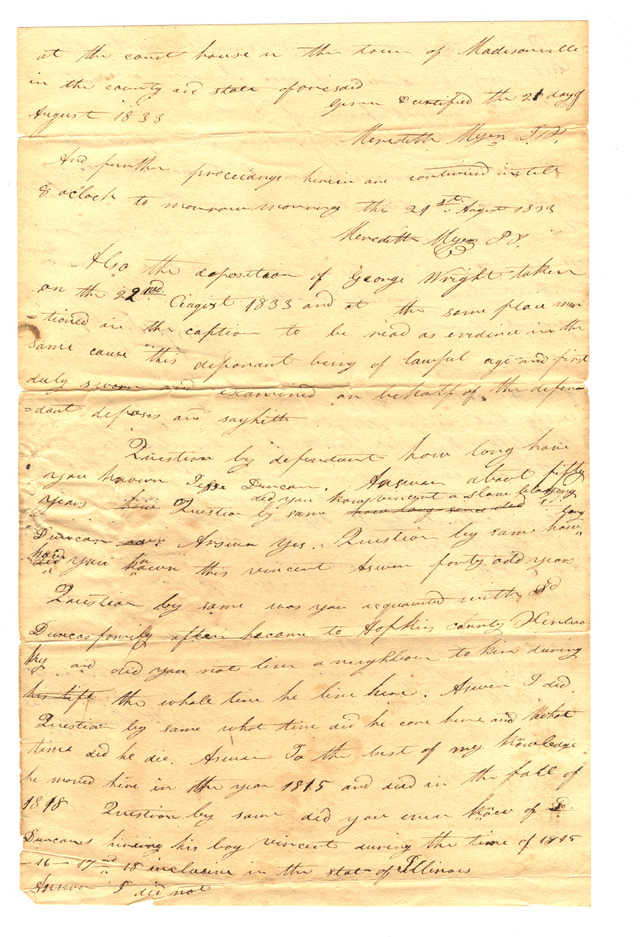 at the court house in the town of Madisonville
in the county and state aforesaid
Given & certified the 21 day of
August 1833
Meredith Myers J.P.
And further preceedings herein are continued untill
8 oclock to morrow morning this 21st August 1833
Meredith Myers J.P.
Also the deposition of George Wright taken
on the 22nd August 1833 and at the same place men
=tioned in the caption to be read as evidence in the
same cause this deponant being of lawful age and first
duly sworn and examined on behalf of the defen
=dant deposes and sayhith
Question by defendant how long have
you known Jesse Duncan. Answer about fifty
years how Question by same did you know vincent a slave blonging to
how long since did
Duncan Answer Yes. Question by same how long
have did you known this vincent Aswer forty odd year
Question by same was you acquainted with sd
Duncas family after he came to Hopkis county Kentuc
ky and did you not live a neighbour to him during
his life the whole time he live here. Aswer I did.
Question by same what time did he come here and what
time did he die. Aswer To the best of my knowledge
he moved here in the year 1815 and died in the fall of
1818 Question by same did you ever know of J.
Duncans hireing his boy vincent during the time of 1815
16 – 17 and 18 inclusive in the state of Illinois
Answer I did not